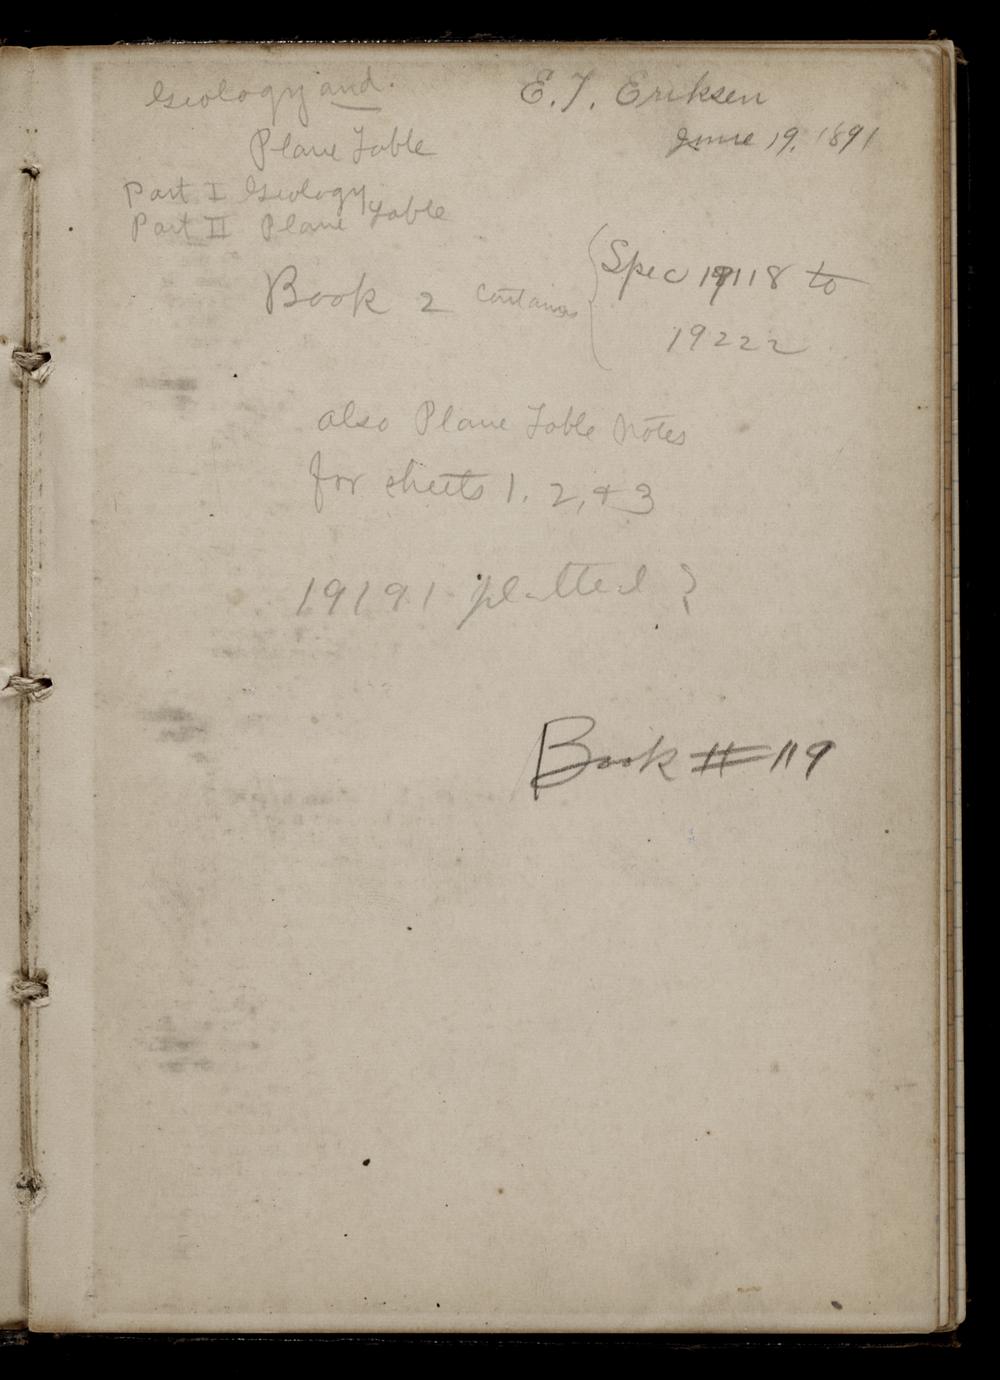 Geology and.
Plane Table
E. T. Eriksen
June 19, 1891
Part I Geology
Part II Plane Table
Book 2 contains
Spec 19118 to
19222
also Plane Table Notes
for sheets 1, 2, & 3
19191 platted ?
Book # 119